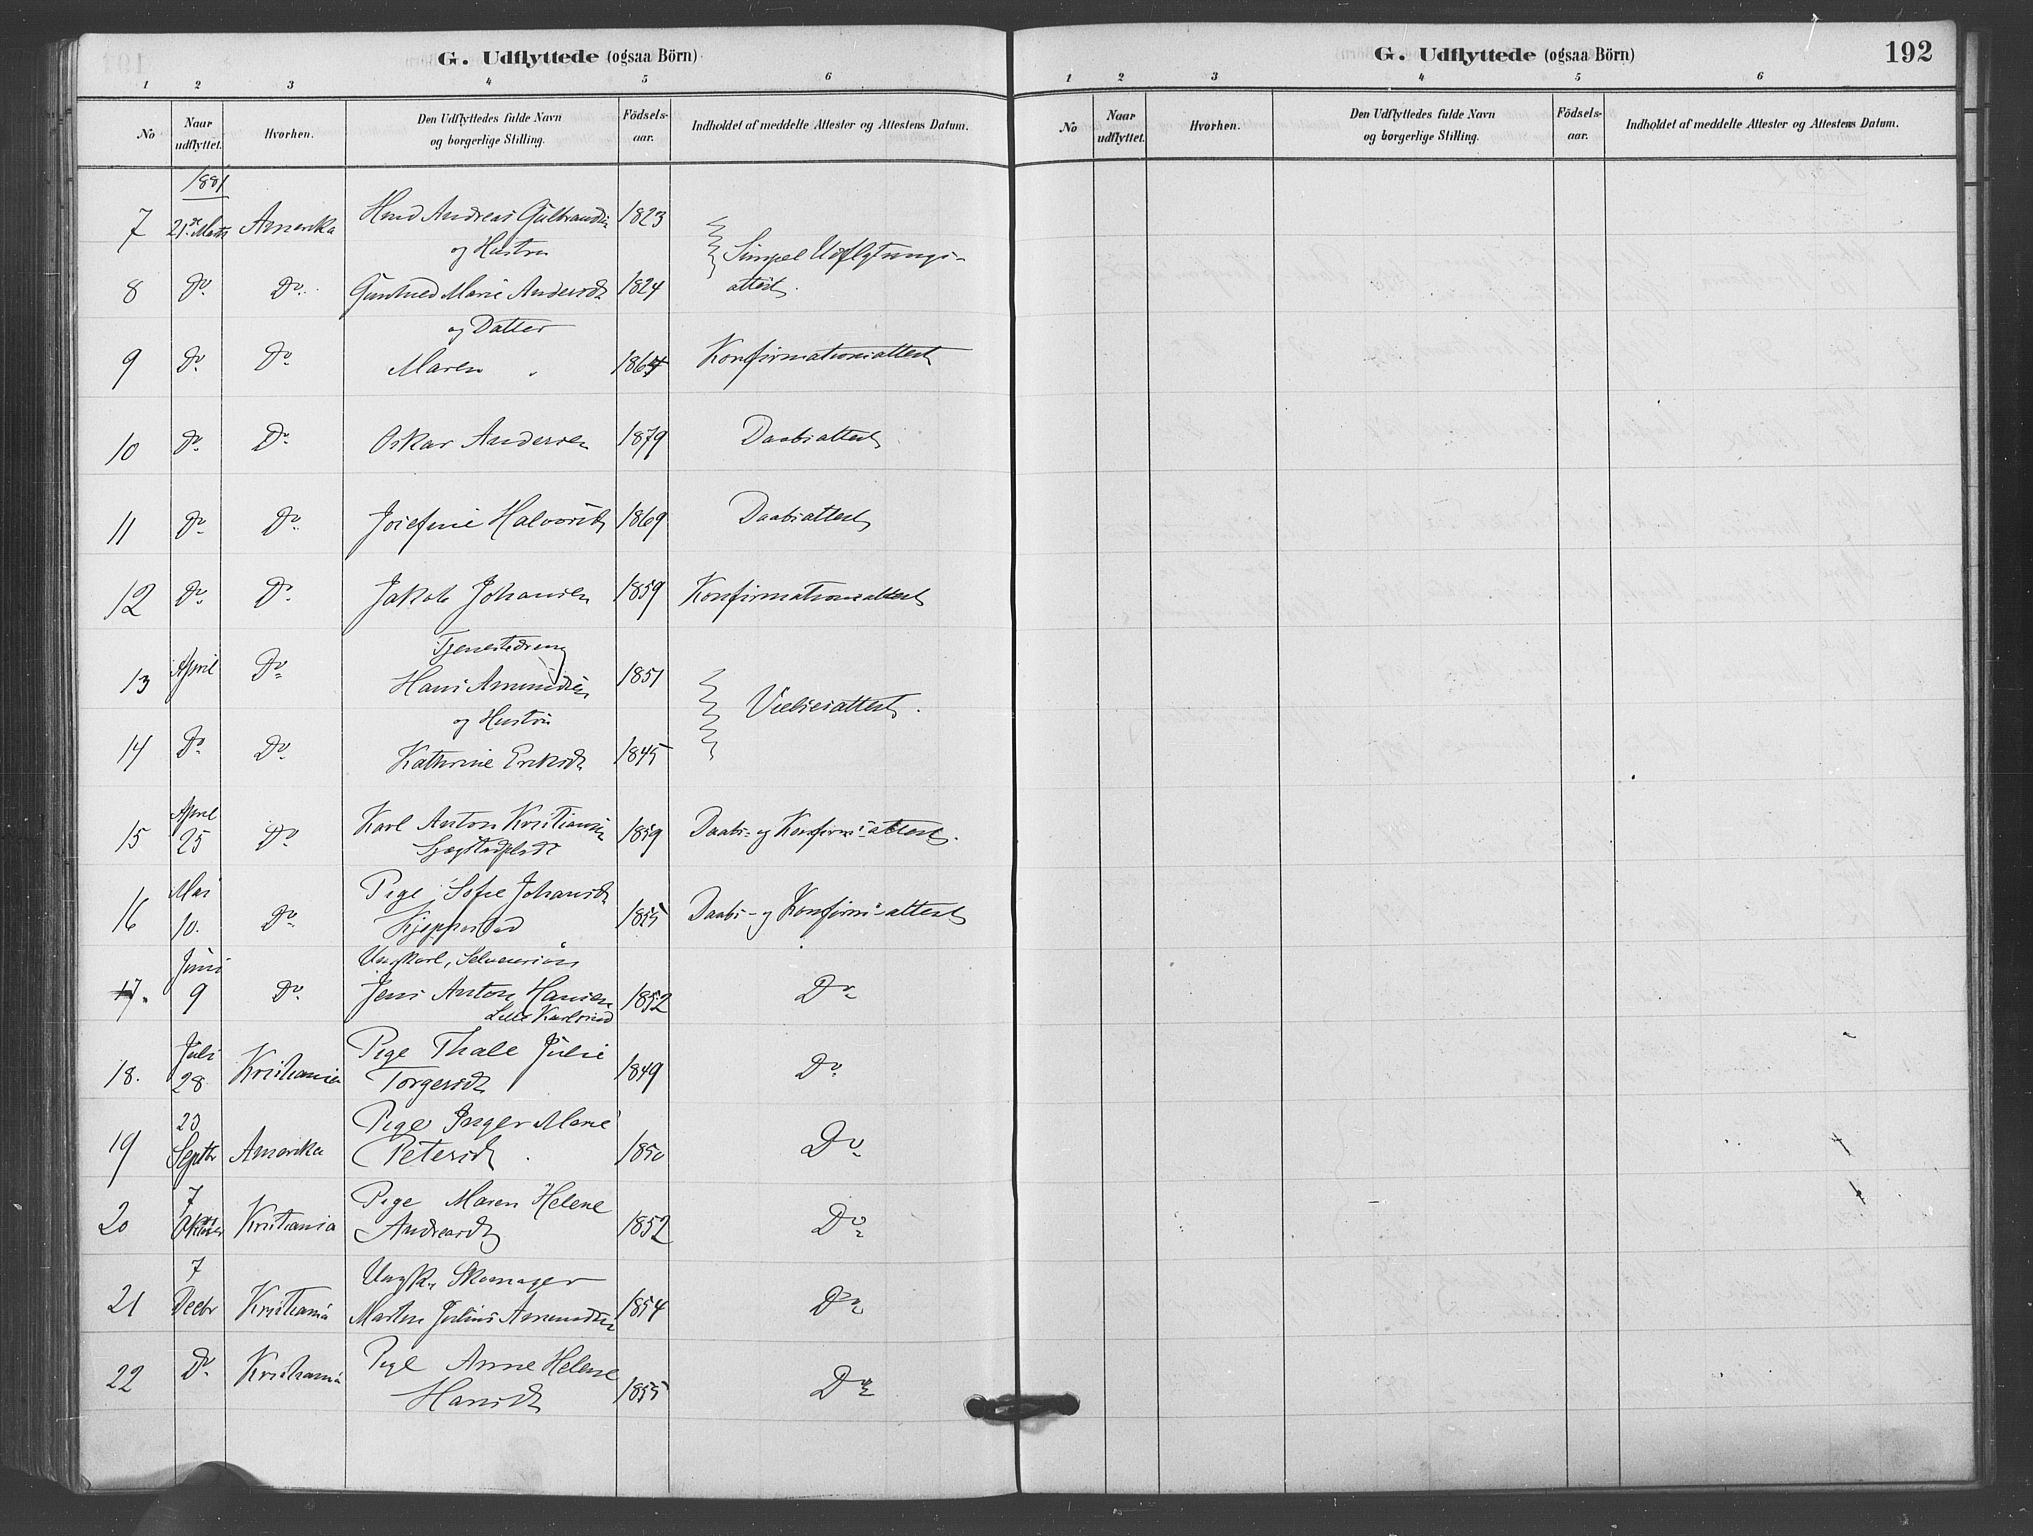 G. Udflyttede (ogsaa Börn)
1 2 3 4 5 6
No Naar udflyttet. Hvorhen. Den Udflyttedes fulde Navn og borgerlige Stilling. Födsels-aar. Indholdet af meddelte Attester og Attestens Datum.
1881
7 21de Marts Amerika Hmd Andreas Gulbrandsen 1823
og Hustru
Simpel Udflytnings-
8 Do Do Gunhild Marie Andersdt 1824 attest.
og Datter
9 Do Do Maren 1864 Konfirmationsattest
10 Do Do Oskar Andersen 1879 Daabsattest
11 Do Do Josefine Halvorsdt 1869 Daabsattest
12 Do Do Jakob Johansen 1859 Konfirmationsattest
Tjenestedreng
13 April Do Hans Amundsen 1851
og Hustru
Vielsesattest.
14 Do Do Kathrine Eriksdt 1845
15 April 25 Do Karl Anton Kristiansen 1859 Daabs- og Konfirms-attest.
16 Mai 10. Do Pige Sofie Johansdt 1855 Daabs- og Konfirms-attest
Kjeppestad
Ungkarl, Selveiersøn
17. Juni 9 Do Jens Anton Hansen 1852 Do
Lille Karlsrud
18. Juli 28 Kristiania Pige Thale Julie 1849 Do
Torgersdt
19 23 Septbr Amerika Pige Inger Marie 1850 Do
Petersdt.
20 7 Oktober Kristiania Pige Maren Helene 1852 Do
Andreasdt
21 7 Decbr Kristiania Ungk. Skomager 1854 Do
Martin Julius Amundsen
22 Do Kristiania Pige Anne Helene 1855 Do
Hansdt
G. Udflyttede (ogsaa Börn) 192
1 2 3 4 5 6
No Naar udflyttet. Hvorhen. Den Udflyttedes fulde Navn og borgerlige Stilling. Födsels-aar. Indholdet af meddelte Attester og Attestens Datum.